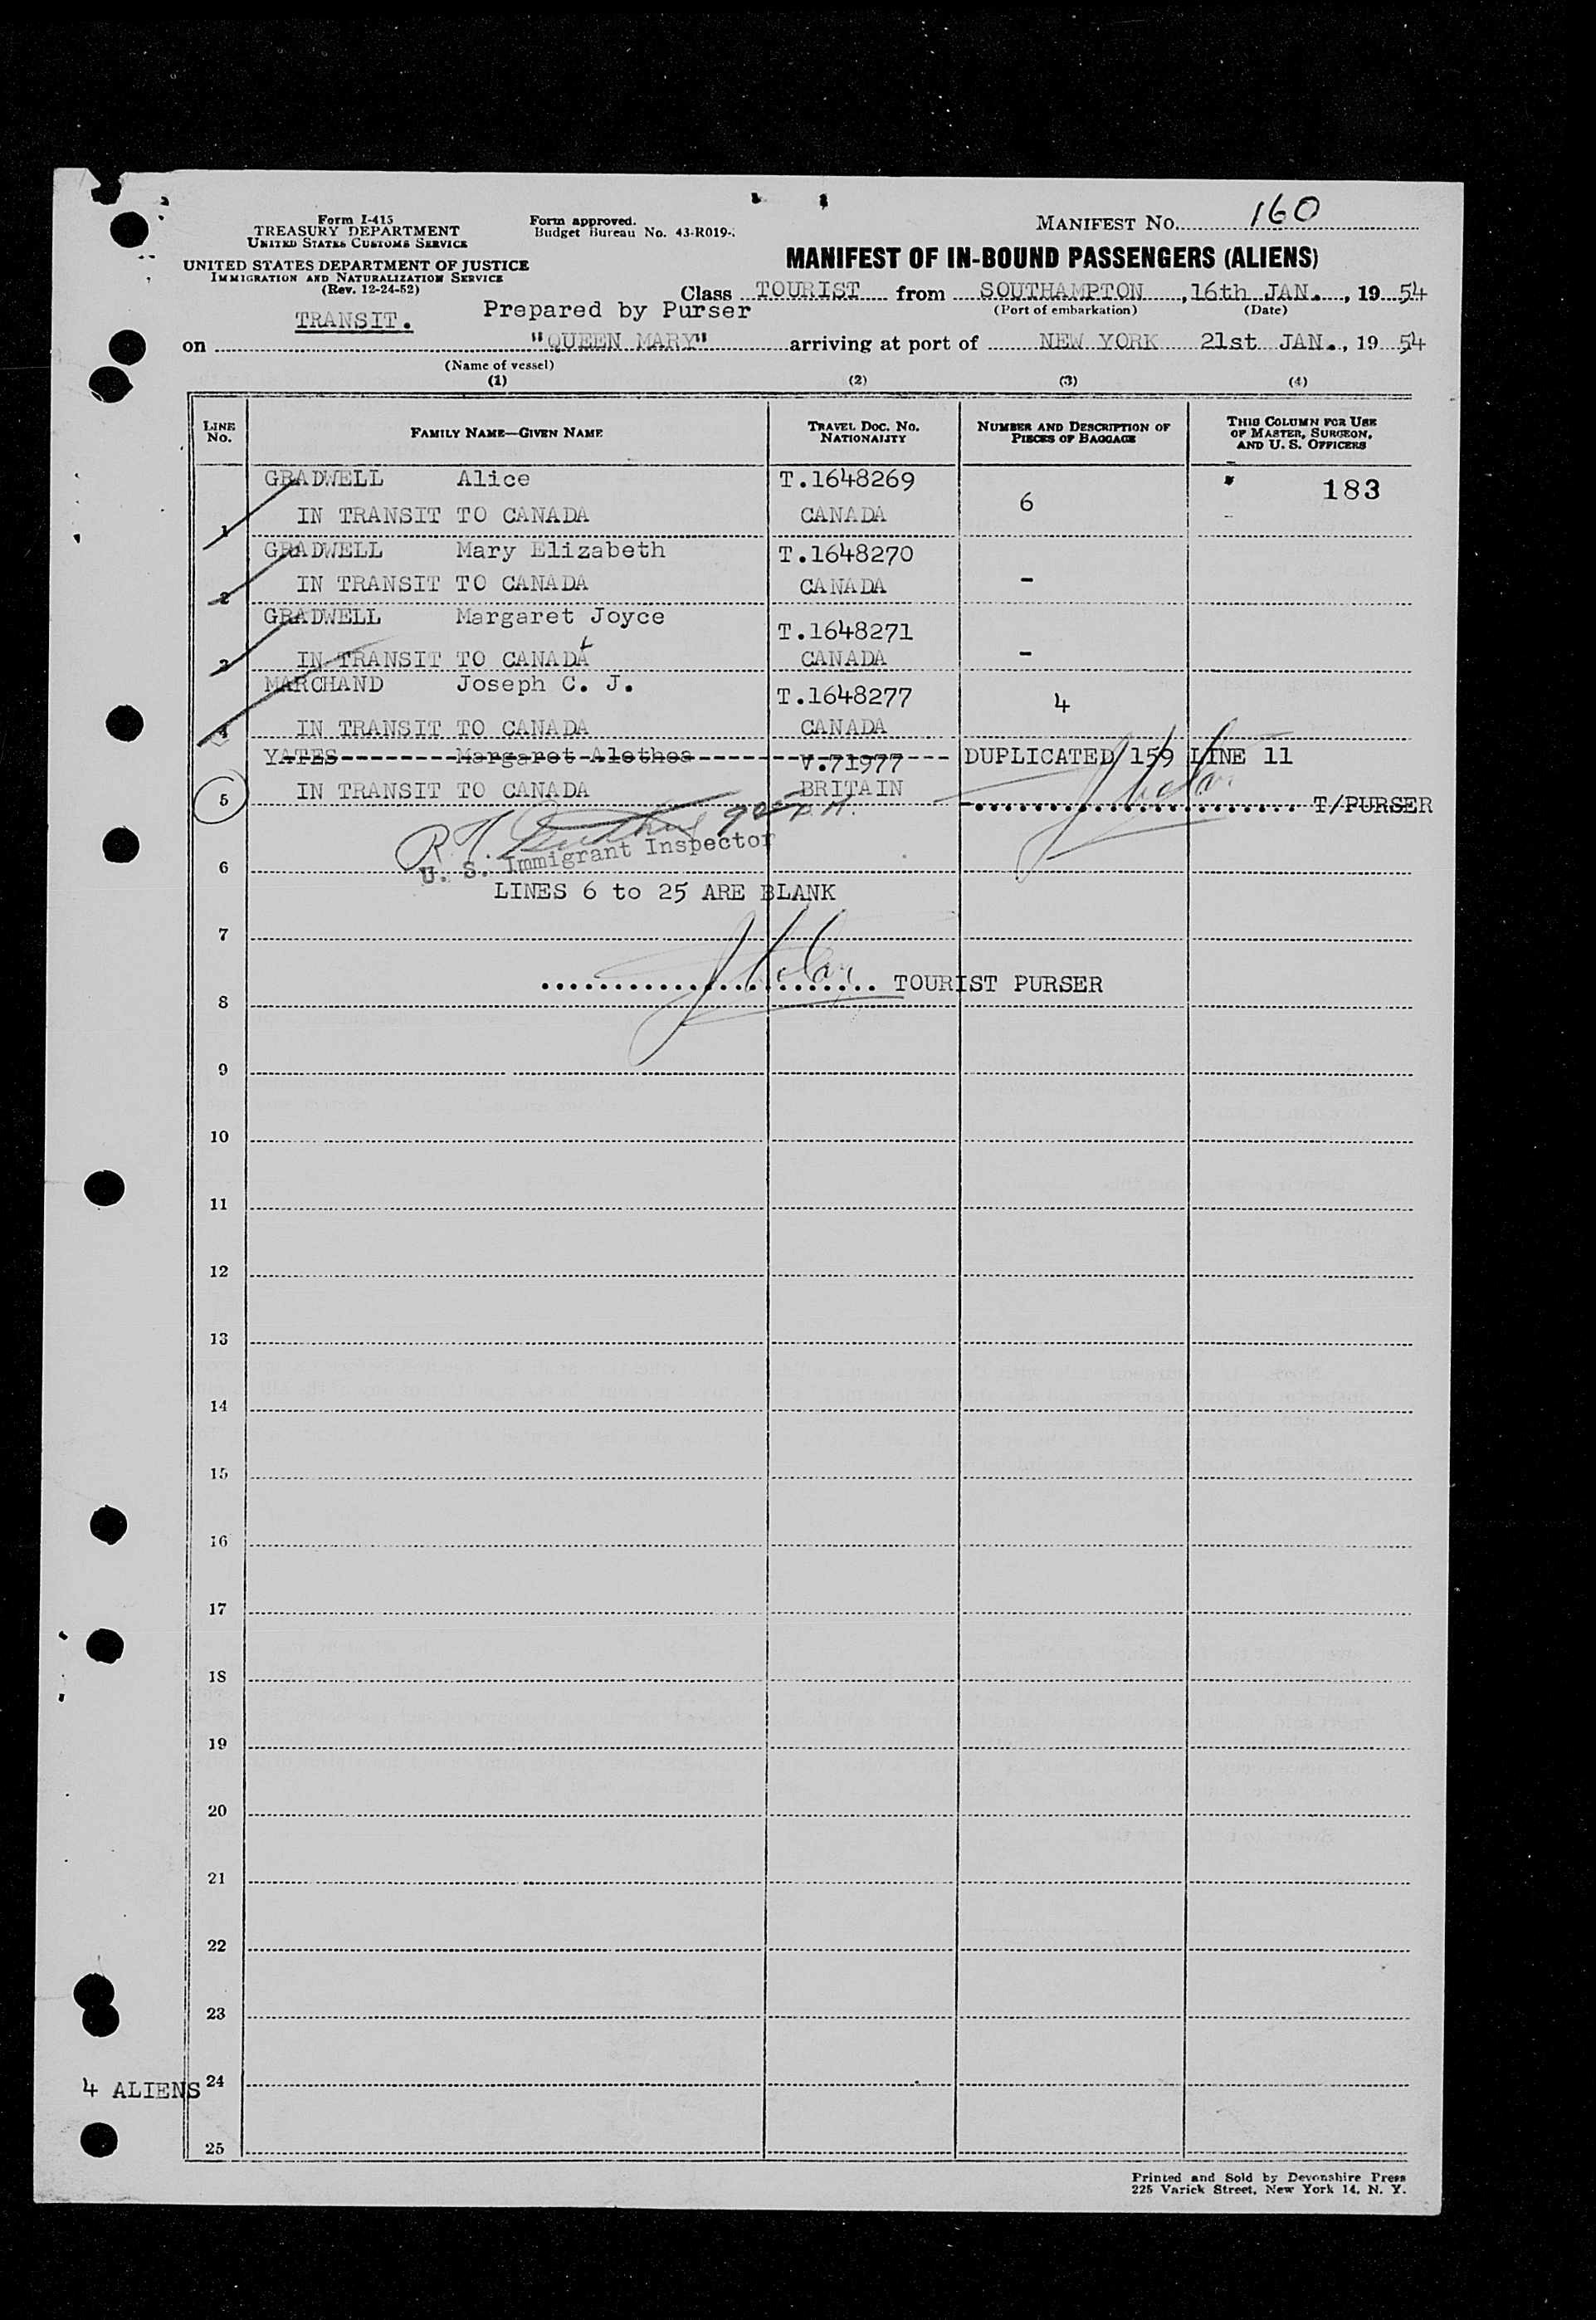 Form I-415
TREASURY DEPARTMENT
UNITED STATES CUSTOMS SERVICE
UNITED STATES DEPARTMENT OF JUSTICE
IMMIGRATION AND NATURALIZATION SERVICE
(Rev. 12-24-52)
Form approved.
Budget Bureau No. 43-R019-
MANIFEST NO. 160
MANIFEST OF IN-BOUND PASSENGERS (ALIENS)
Class TOURIST from SOUTHAMPTON, 16th JAN., 1954
(Port of embarkation) (Date)
TRANSIT. Prepared by Purser
on "QUEEN MARY" arriving at port of NEW YORK 21st JAN., 1954
(Name of vessel)
(1) (2) (3) (4)
LINE NO. FAMILY NAME—GIVEN NAME TRAVEL DOC. NO. NATIONALITY NUMBER AND DESCRIPTION OF PIECES OF BAGGAGE THIS COLUMN FOR USE OF MASTER, SURGEON, AND U. S. OFFICERS
GRADWELL Alice T.1648269 183
1 IN TRANSIT TO CANADA CANADA 6
GRADWELL Mary Elizabeth T.1648270
2 IN TRANSIT TO CANADA CANADA -
GRADWELL Margaret Joyce T.1648271
3 IN TRANSIT TO CANADA CANADA -
MARCHAND Joseph C. J. T.1648277 4
4 IN TRANSIT TO CANADA CANADA
YATES Margaret Alethea V.71977 DUPLICATED 159 LINE 11
5 IN TRANSIT TO CANADA BRITAIN T/PURSER
U. S. Immigrant Inspector
6
LINES 6 to 25 ARE BLANK
7
TOURIST PURSER
8
9
10
11
12
13
14
15
16
17
18
19
20
21
22
23
4 ALIENS 24
25
Printed and Sold by Devonshire Press
225 Varick Street, New York 14, N. Y.